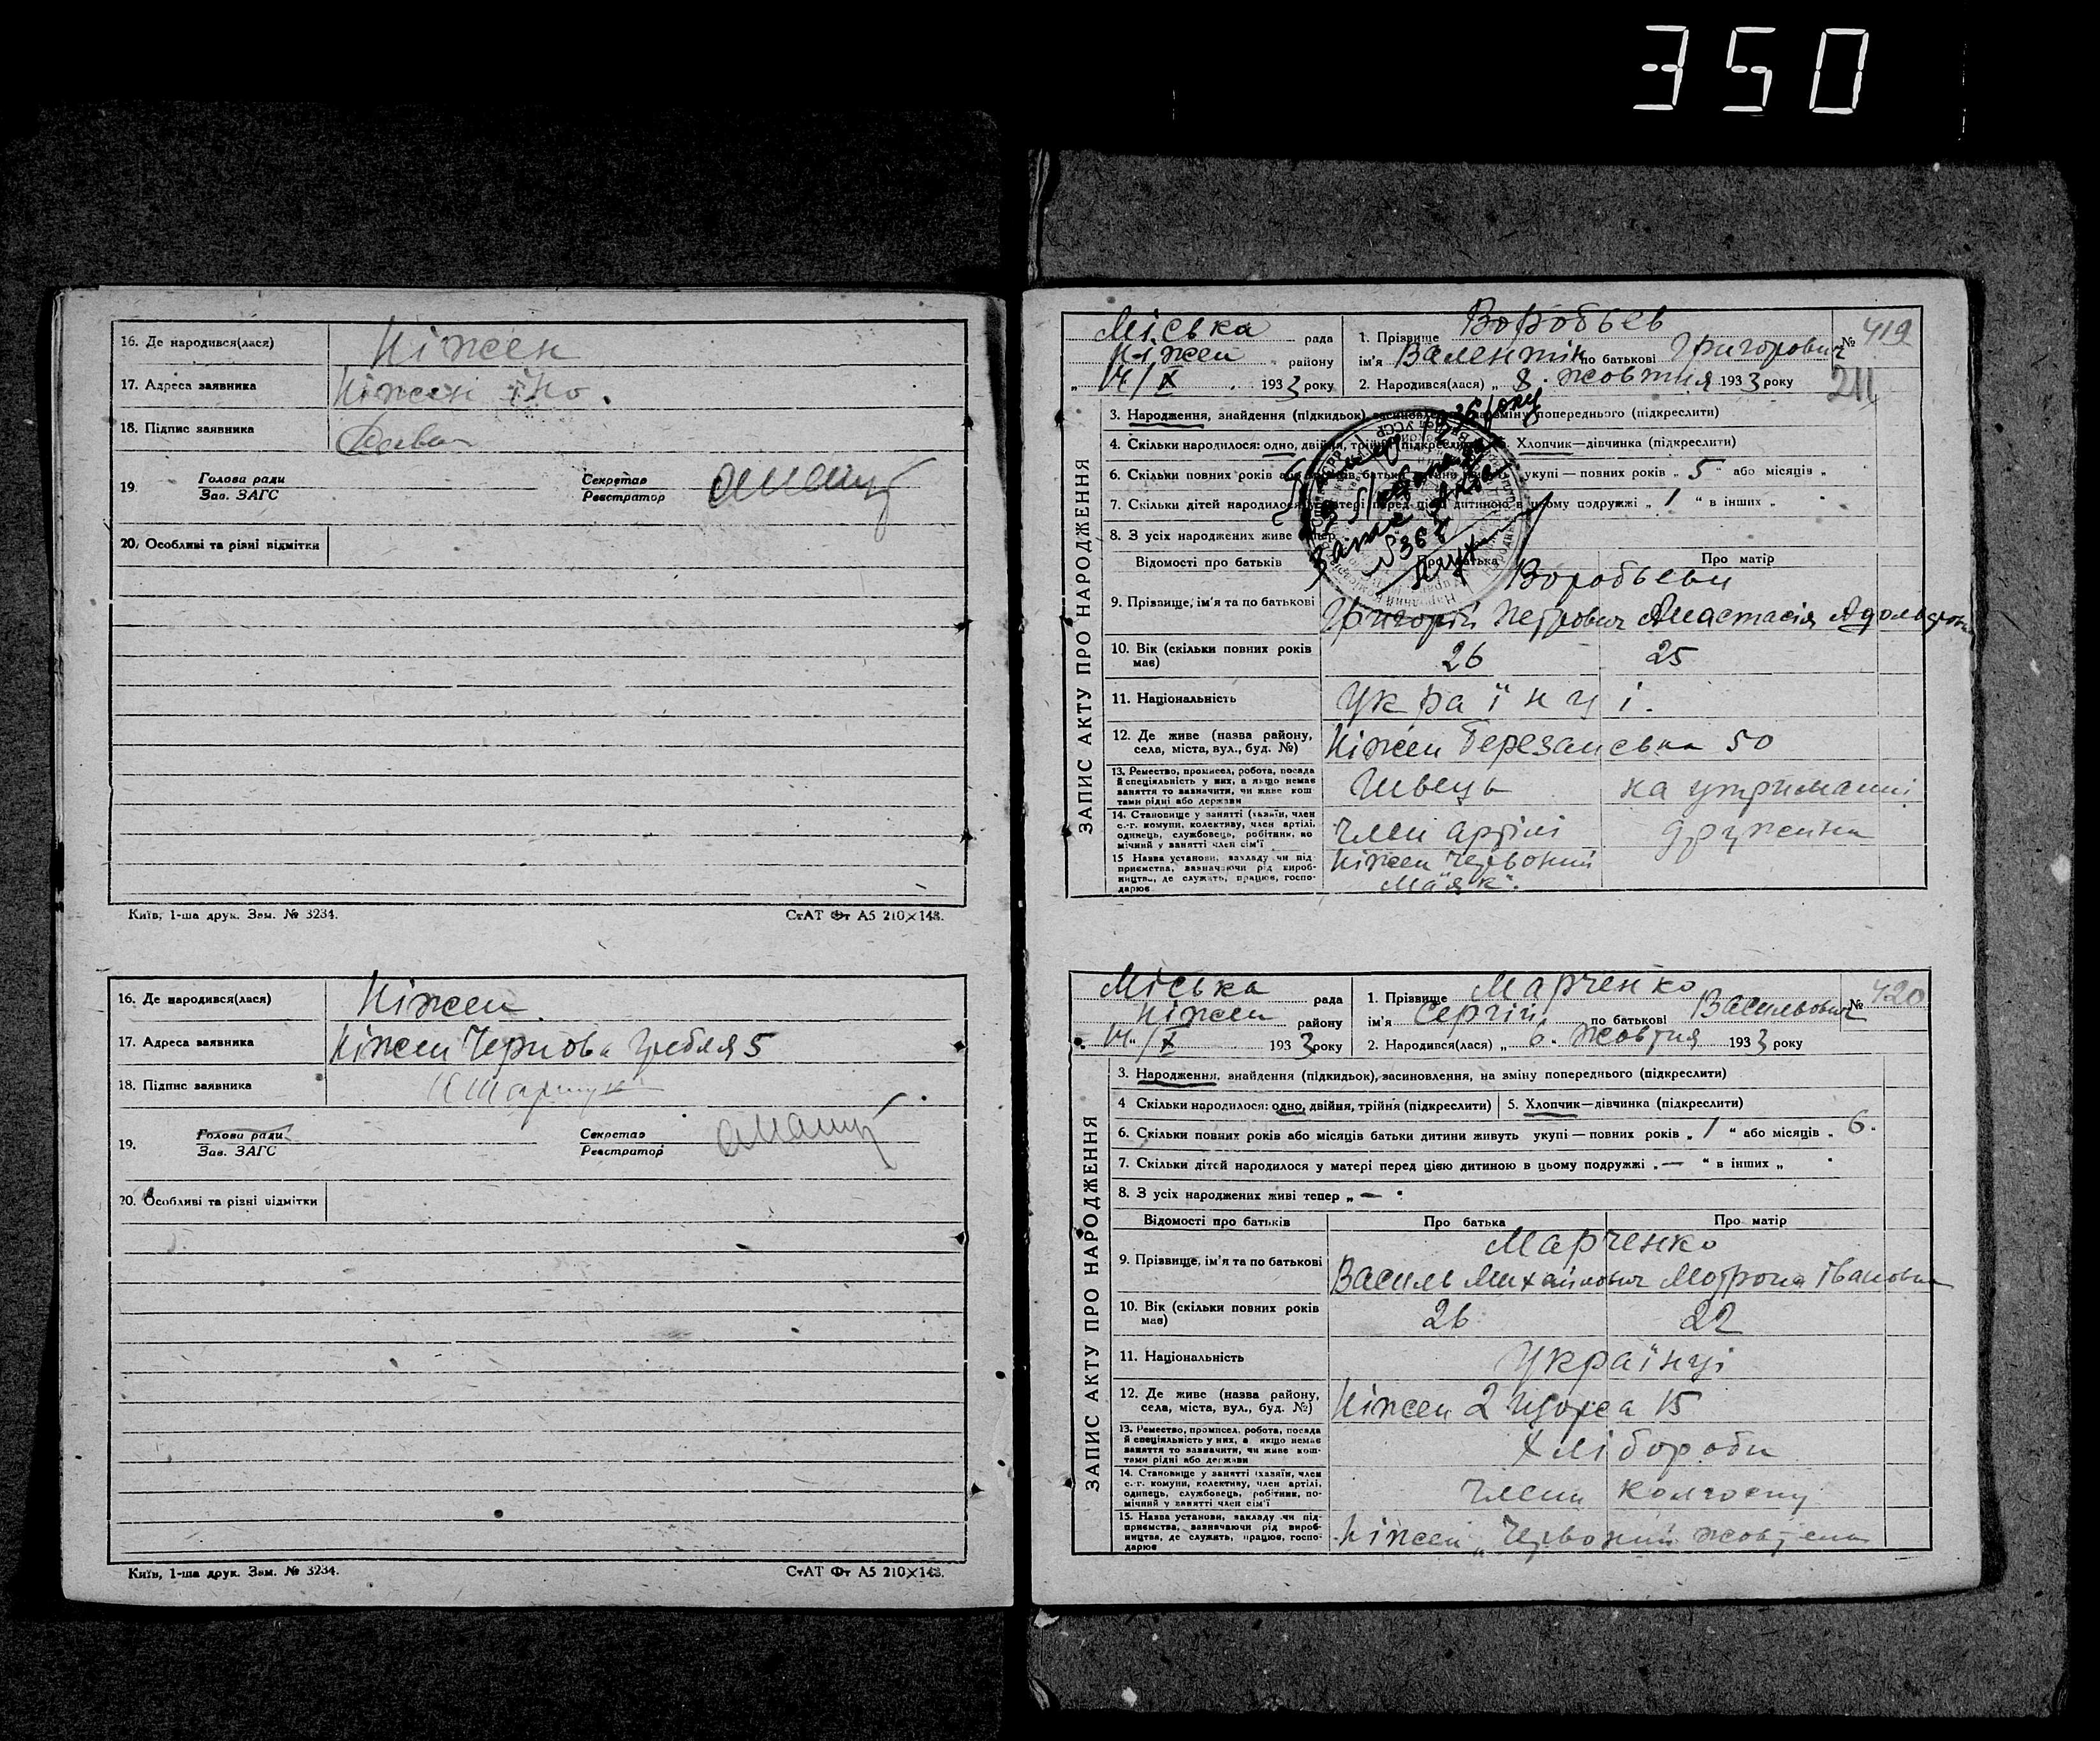 350
16. Де народився(лася) Ніжен
17. Адреса заявника Ніжен
18. Підпис заявника
19. Голова ради
Зав. ЗАГС
Секретар
Реєстратор
20. Особливі та різні відмітки
Київ, 1-ша друк. Зам. № 3234. СтАТ Фт А5 210×148.
16. Де народився(лася) Ніжен
17. Адреса заявника Ніжен Чернова Гребля 5
18. Підпис заявника
19. Голова ради
Зав. ЗАГС
Секретар
Реєстратор
20. Особливі та різні відмітки
Київ, 1-ша друк. Зам. № 3234. СтАТ Фт А5 210×148.
ЗАПИС АКТУ ПРО НАРОДЖЕННЯ
Міська рада
Ніжен району
" 14/X 1933 року
1. Прізвище Воробьев № 419
ім'я Валентін по батькові Григорович
2. Народився(лася) " 8. жовтня 1933 року 211
3. Народження, знайдення (підкидьок), засиновлення, на зміну попереднього (підкреслити)
4. Скільки народилося: одно, двійня, трійня (підкреслити) 5. Хлопчик—дівчинка (підкреслити)
6. Скільки повних років або місяців батьки дитини живуть укупі — повних років " 5 " або місяців "
7. Скільки дітей народилося у матері перед цією дитиною в цьому подружжі " 1 " в інших "
8. З усіх народжених живе тепер
Відомості про батьків Про батька Про матір
Воробьеви
9. Прізвище, ім'я та по батькові Григорій Петрович Анастасія
10. Вік (скільки повних років має) 26 25
11. Національність Українці.
12. Де живе (назва району, села, міста, вул., буд. №) Ніжен Березанська 50
13. Ремество, промисел, робота, посада й спеціяльність у них, а якщо немає заняття то зазначити, чи живе коштами рідні або держави Швець на утриманні
14. Становище у занятті (хазяїн, член с.-г. комуни, колективу, член артілі, одинець, службовець, робітник, помічний у занятті член сім'ї член артілі дружина
15 Назва установи, закладу чи підприємства, зазначаючи рід виробництва, де служать, працює, господарює Ніжен Червоний
Маяк".
ЗАПИС АКТУ ПРО НАРОДЖЕННЯ
Міська рада
Ніжен району
14/X 1933 року
1. Прізвище Марченко № 420
ім'я Сергій по батькові Васильович
2. Народився(лася) " 6. жовтня 1933 року
3. Народження, знайдення (підкидьок), засиновлення, на зміну попереднього (підкреслити)
4 Скільки народилося: одно, двійня, трійня (підкреслити) 5. Хлопчик—дівчинка (підкреслити)
6. Скільки повних років або місяців батьки дитини живуть укупі — повних років " 1 " або місяців " 6.
7. Скільки дітей народилося у матері перед цією дитиною в цьому подружжі " — " в інших "
8. З усіх народжених живі тепер " — "
Відомості про батьків Про батька Про матір
Марченко
9. Прізвище, ім'я та по батькові Василь Михайлович Мотрона Івановна
10. Вік (скільки повних років має) 26 22
11. Національність Українці
12. Де живе (назва району, села, міста, вул., буд. №) Ніжен 2 Щорса 15
13. Ремество, промисел, робота, посада й спеціяльність у них, а якщо немає заняття то зазначити, чи живе коштами рідні або держави Хлібороби
14. Становище у занятті (хазяїн, член с.-г. комуни, колективу, член артілі, одинець, службовець, робітник, помічний у занятті член сім'ї члени колгоспу
15. Назва установи, закладу чи підприємства, зазначаючи рід виробництва, де служать, працює, господарює Ніжен „Червоний жовтень